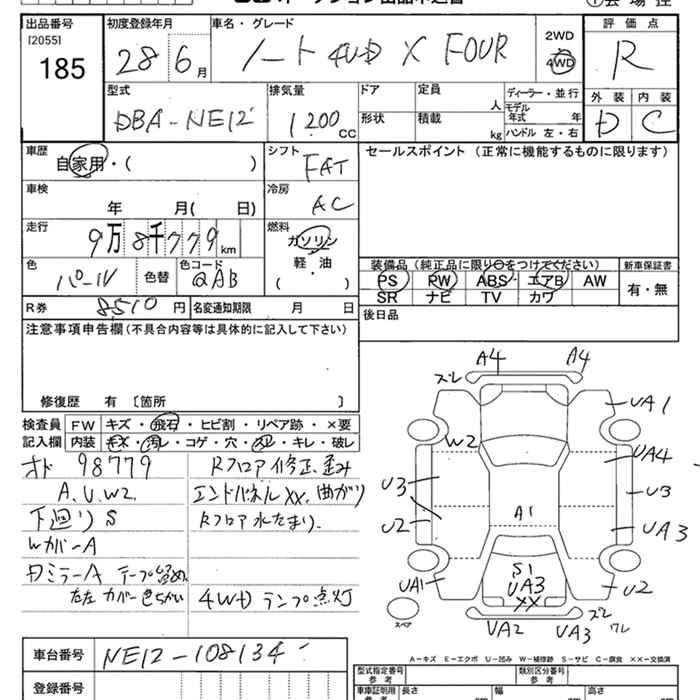 出品番号
[2055]
185
初度登録年月
28 6月
車名・グレード
ノート 4WD X FOUR
2WD
4WD
評価点
R
型式
DBA-NE12
排気量
1200cc
ドア
形状
定員
人
積載
kg
ディーラー・並行
モデル年式 年
ハンドル 左・右
外装 内装
D C
車歴
自家用・( )
シフト
FAT
セールスポイント (正常に機能するものに限ります)
車検
年 月( 日)
冷房
AC
走行
9万8千779km
燃料
ガソリン
軽・油
( )
色
パール
色替
色コード
QAB
装備品 (純正品に限り○をつけてください)
新車保証書
PS PW ABS エアB AW
有・無
SR ナビ TV カワ
R券
8510円
名変通知期限 月 日
後日品
注意事項申告欄(不具合内容等は具体的に記入して下さい)
修復歴 有 〔箇所 〕
検査員記入欄
FW キズ・飛石・ヒビ割・リペア跡・×要
内装 キズ・汚レ・コゲ・穴・スレ・キレ・破レ
オド 98779
A、U、W2
下廻りS
Wカバー A
Dミラー A テープ留め
左右 カバー色ちがい
Rフロア修正、歪み
エンドパネルXX、曲がり
Rフロア水たまり
4WDランプ点灯
A4 A4
ズレ
UA1
W2
UA4
U3
U3
U2
A1
UA3
UA1
S1
UA3
XX
U2
ズレ
UA2
UA3
ワレ
スペア
A-キズ E-エクボ U-凹み W-補修跡 S-サビ C-腐食 ××-交換済
車台番号
NE12-108134
登録番号
型式指定番号
参考
類別区分番号
参考
車車証明用
参考
長さ
幅
高さ